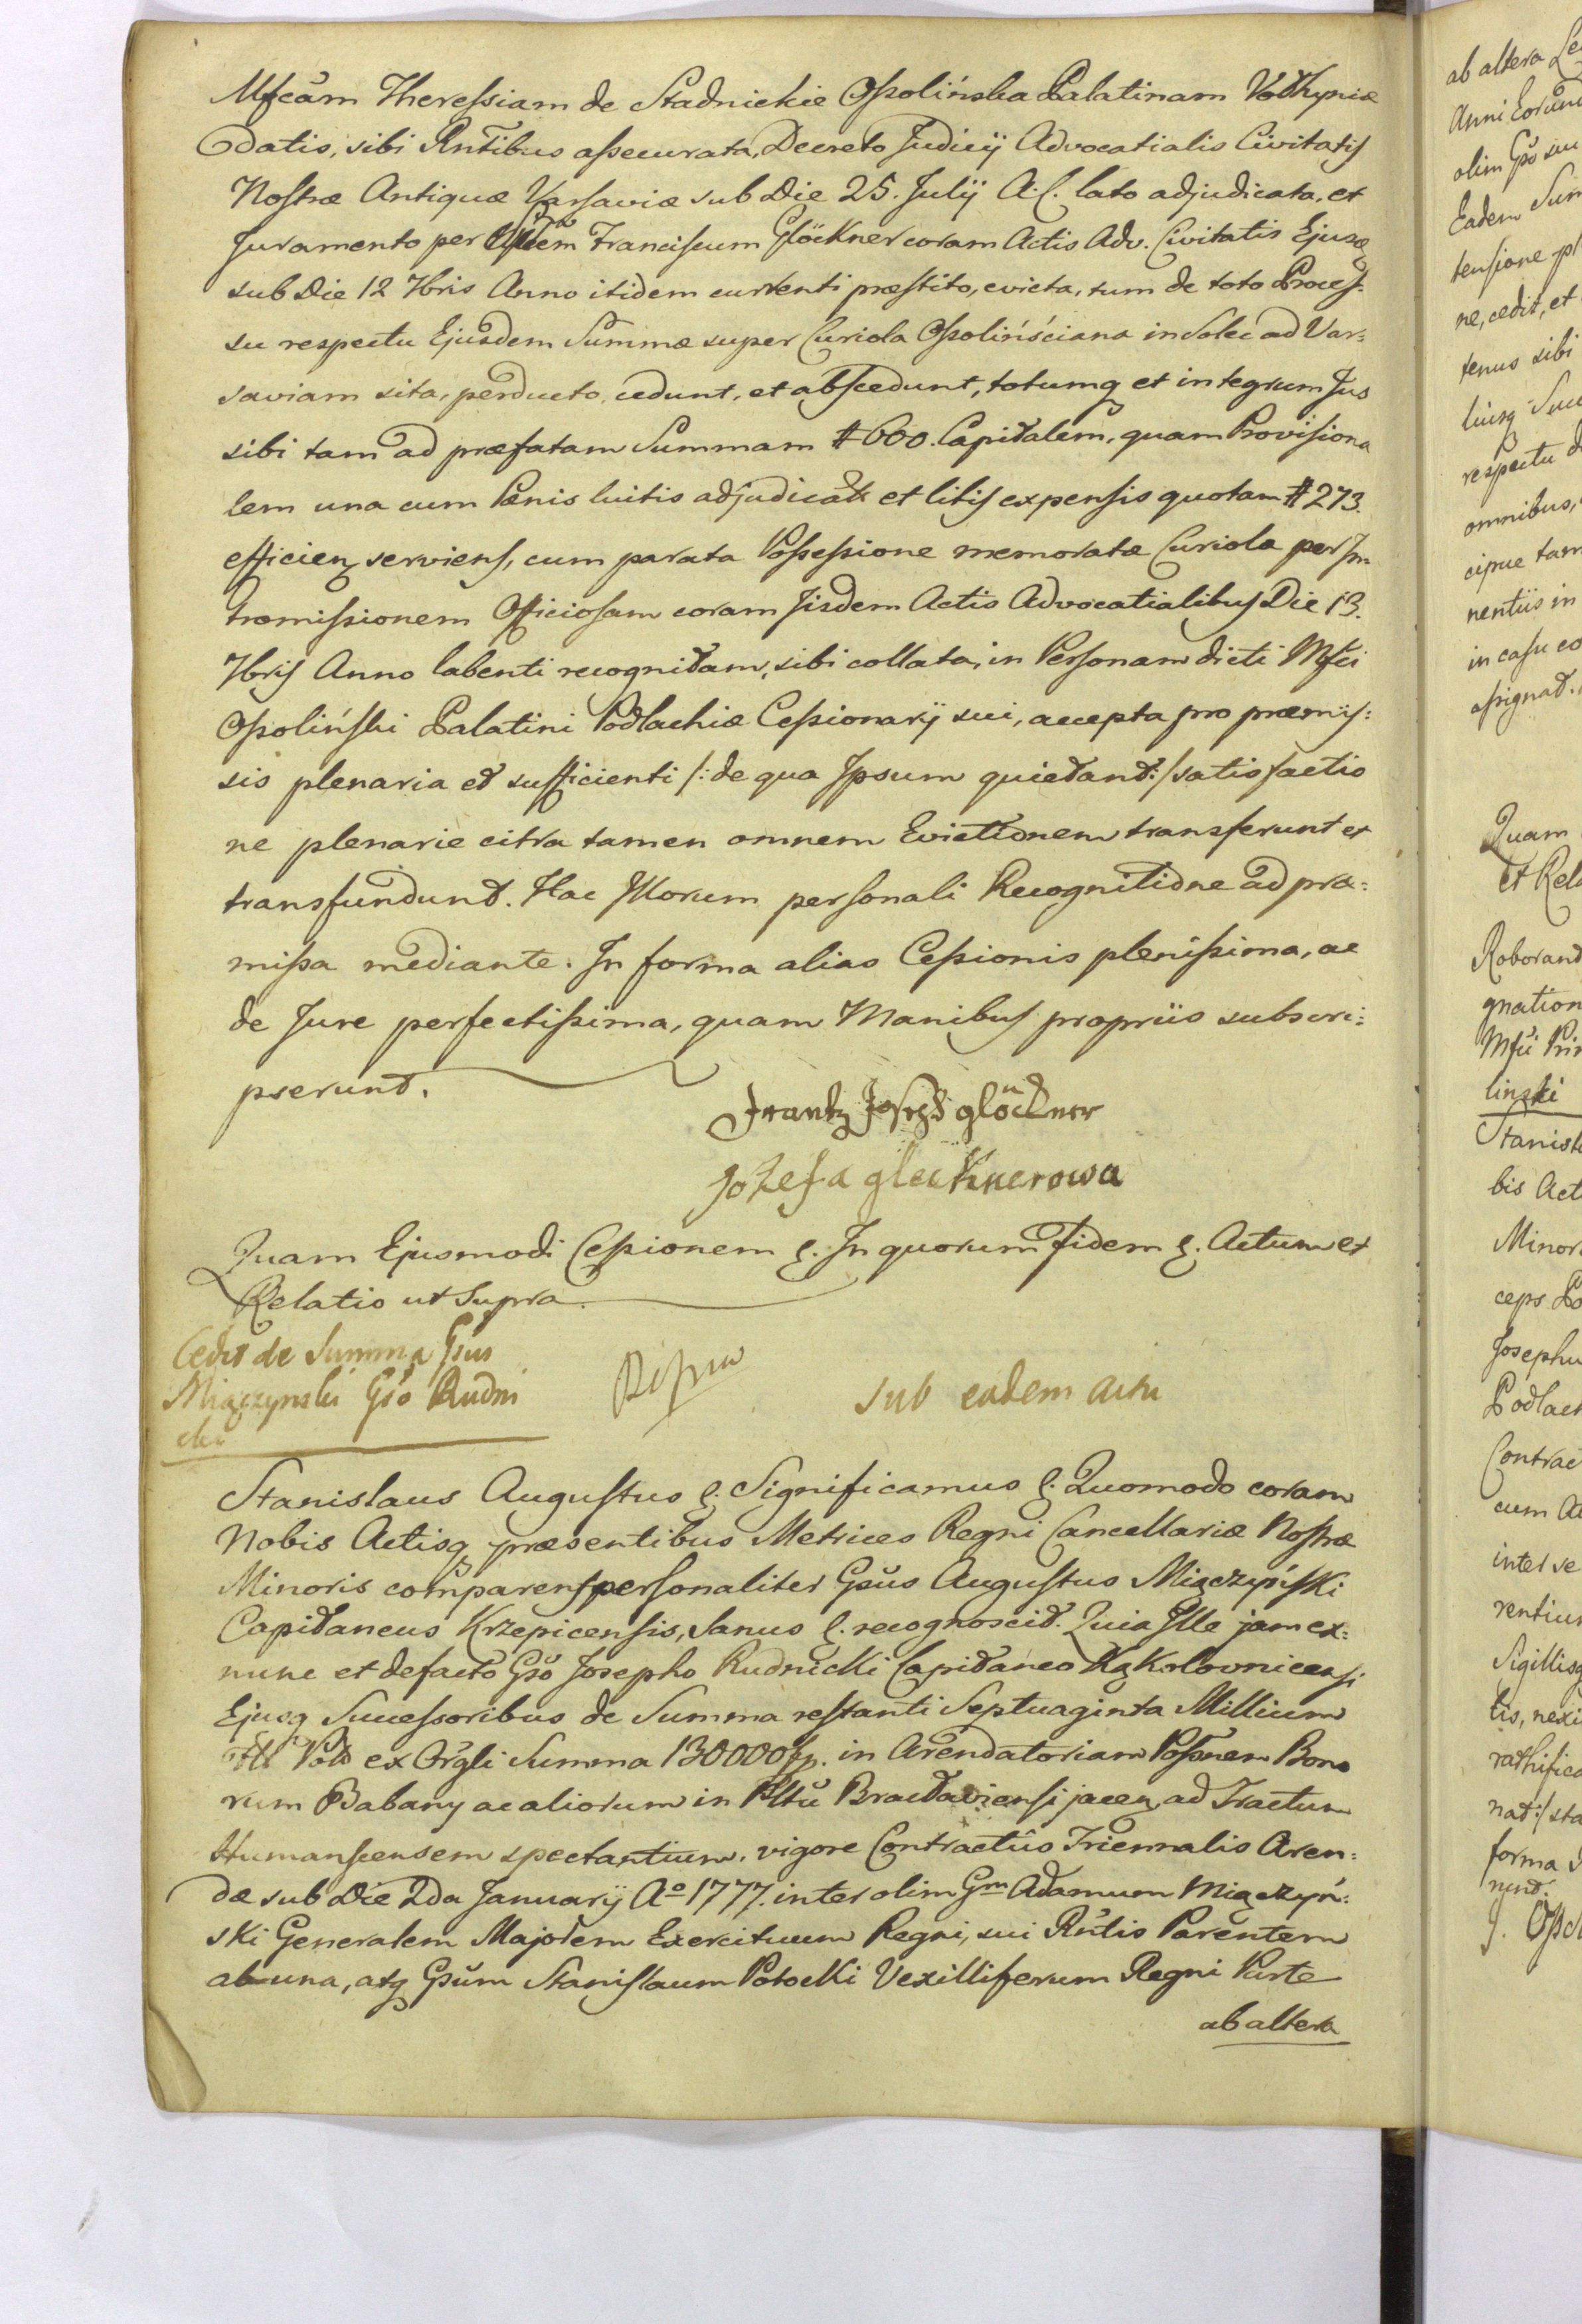 Mfcam Theressiam de Stadnickie Ossolińska Palatinam Volhyniæ
datis, sibi Rntibus assecurata, Decreto Judicij Advocatialis Civitatis
Nostræ Antiquæ Varsaviæ sub Die 25. Julij A. C. lato adjudicata, et
Juramento per Franciscum Glöckner coram Actis Adv. Civitatis Ejusq
sub Die 12 7bris Anno itidem currenti præstito, evicta, tum de toto Proces-
su respectu Ejusdem Summæ super Curiola Ossolińściana in Solec ad Var:
saviam sita, perducto, cedunt, et abscedunt, totumq et integrum Jus
sibi tam ad præfatam Summam # 600. Capitalem, quam Provisiona
lem una cum Pænis luitis adjudicatis et litis expensis quotam # 273.
efficien serviens, cum parata Possessione memoratæ Curiola per In-
tromissionem Officiosam coram Jisdem Actis Advocatialibus Die 13.
7bris Anno labenti recognitam, sibi collata, in Personam dicti Mfci
Ossoliński Palatini Podlachiæ Cessionarij sui, accepta pro præmis:
sis plenaria et sufficienti /: de qua Ipsum quietant :/ satisfactio
ne plenarie citra tamen omnem Evictionem transferunt et
transfundunt. Hac Illorum personali Recognitione ad præ:
missa mediante. In forma alias Cessionis plenissima, ac
de Jure perfectissima, quam Manibus propriis subscri:
pserunt.
Frantz Joseph glöckner
Jozefa gleuknerowa
Quam Ejusmodi Cessionem &. In quorum fidem &. Actum et
Relatio ut Supra.
Cedit de Summa Gsus
Miączynski Gso Rudni
cki
sub eadem actu
Stanislaus Augustus &. Significamus &. Quomodo coram
Nobis Actisq præsentibus Metrices Regni Cancellariæ Nostræ
Minoris comparens personaliter Gsus Augustus Miączyński
Capitaneus Krzepicensis, Sanus &. recognoscit. Quia Ille jam ex:
nunc et defacto Gso Josepho Rudnicki Capitaneo Kąkolovnicensi
Ejusq Successoribus de Summa restanti Septuaginta Millium
Flr Pol ex Orgli Summa 130000 fp. in Arendatoriam Possnem Bono
rum Babany ac aliorum in Pltu Braclaviensi jacen ad Tractum
Humanscensem spectantium, vigore Contractûs Triennalis Aren:
dæ sub Die 2da Januarij Aº 1777. inter olim Gm Adamum Miączyń:
ski Generalem Majorem Exercituum Regni, sui Rntis Parentem
ab una, atq Gsum Stanislaum Potocki Vexilliferum Regni Parte
ab altera
ab altera
olim Gso
Eadem Sum
tensione
ne, cedit, et
tenus sibi
respectu
omnibus,
cipue tam
nentiis in
in casu
assignat.
Quam
et Rela
Roborand
gnation
Mfci Prin
linski
Stanisl
bis Act
Minor
ceps Po
Josephu
Podlach
Contrac
cum
inter se
rentium
Sigillisq
tis, nexi
rathifica
nat :/ sta
forma